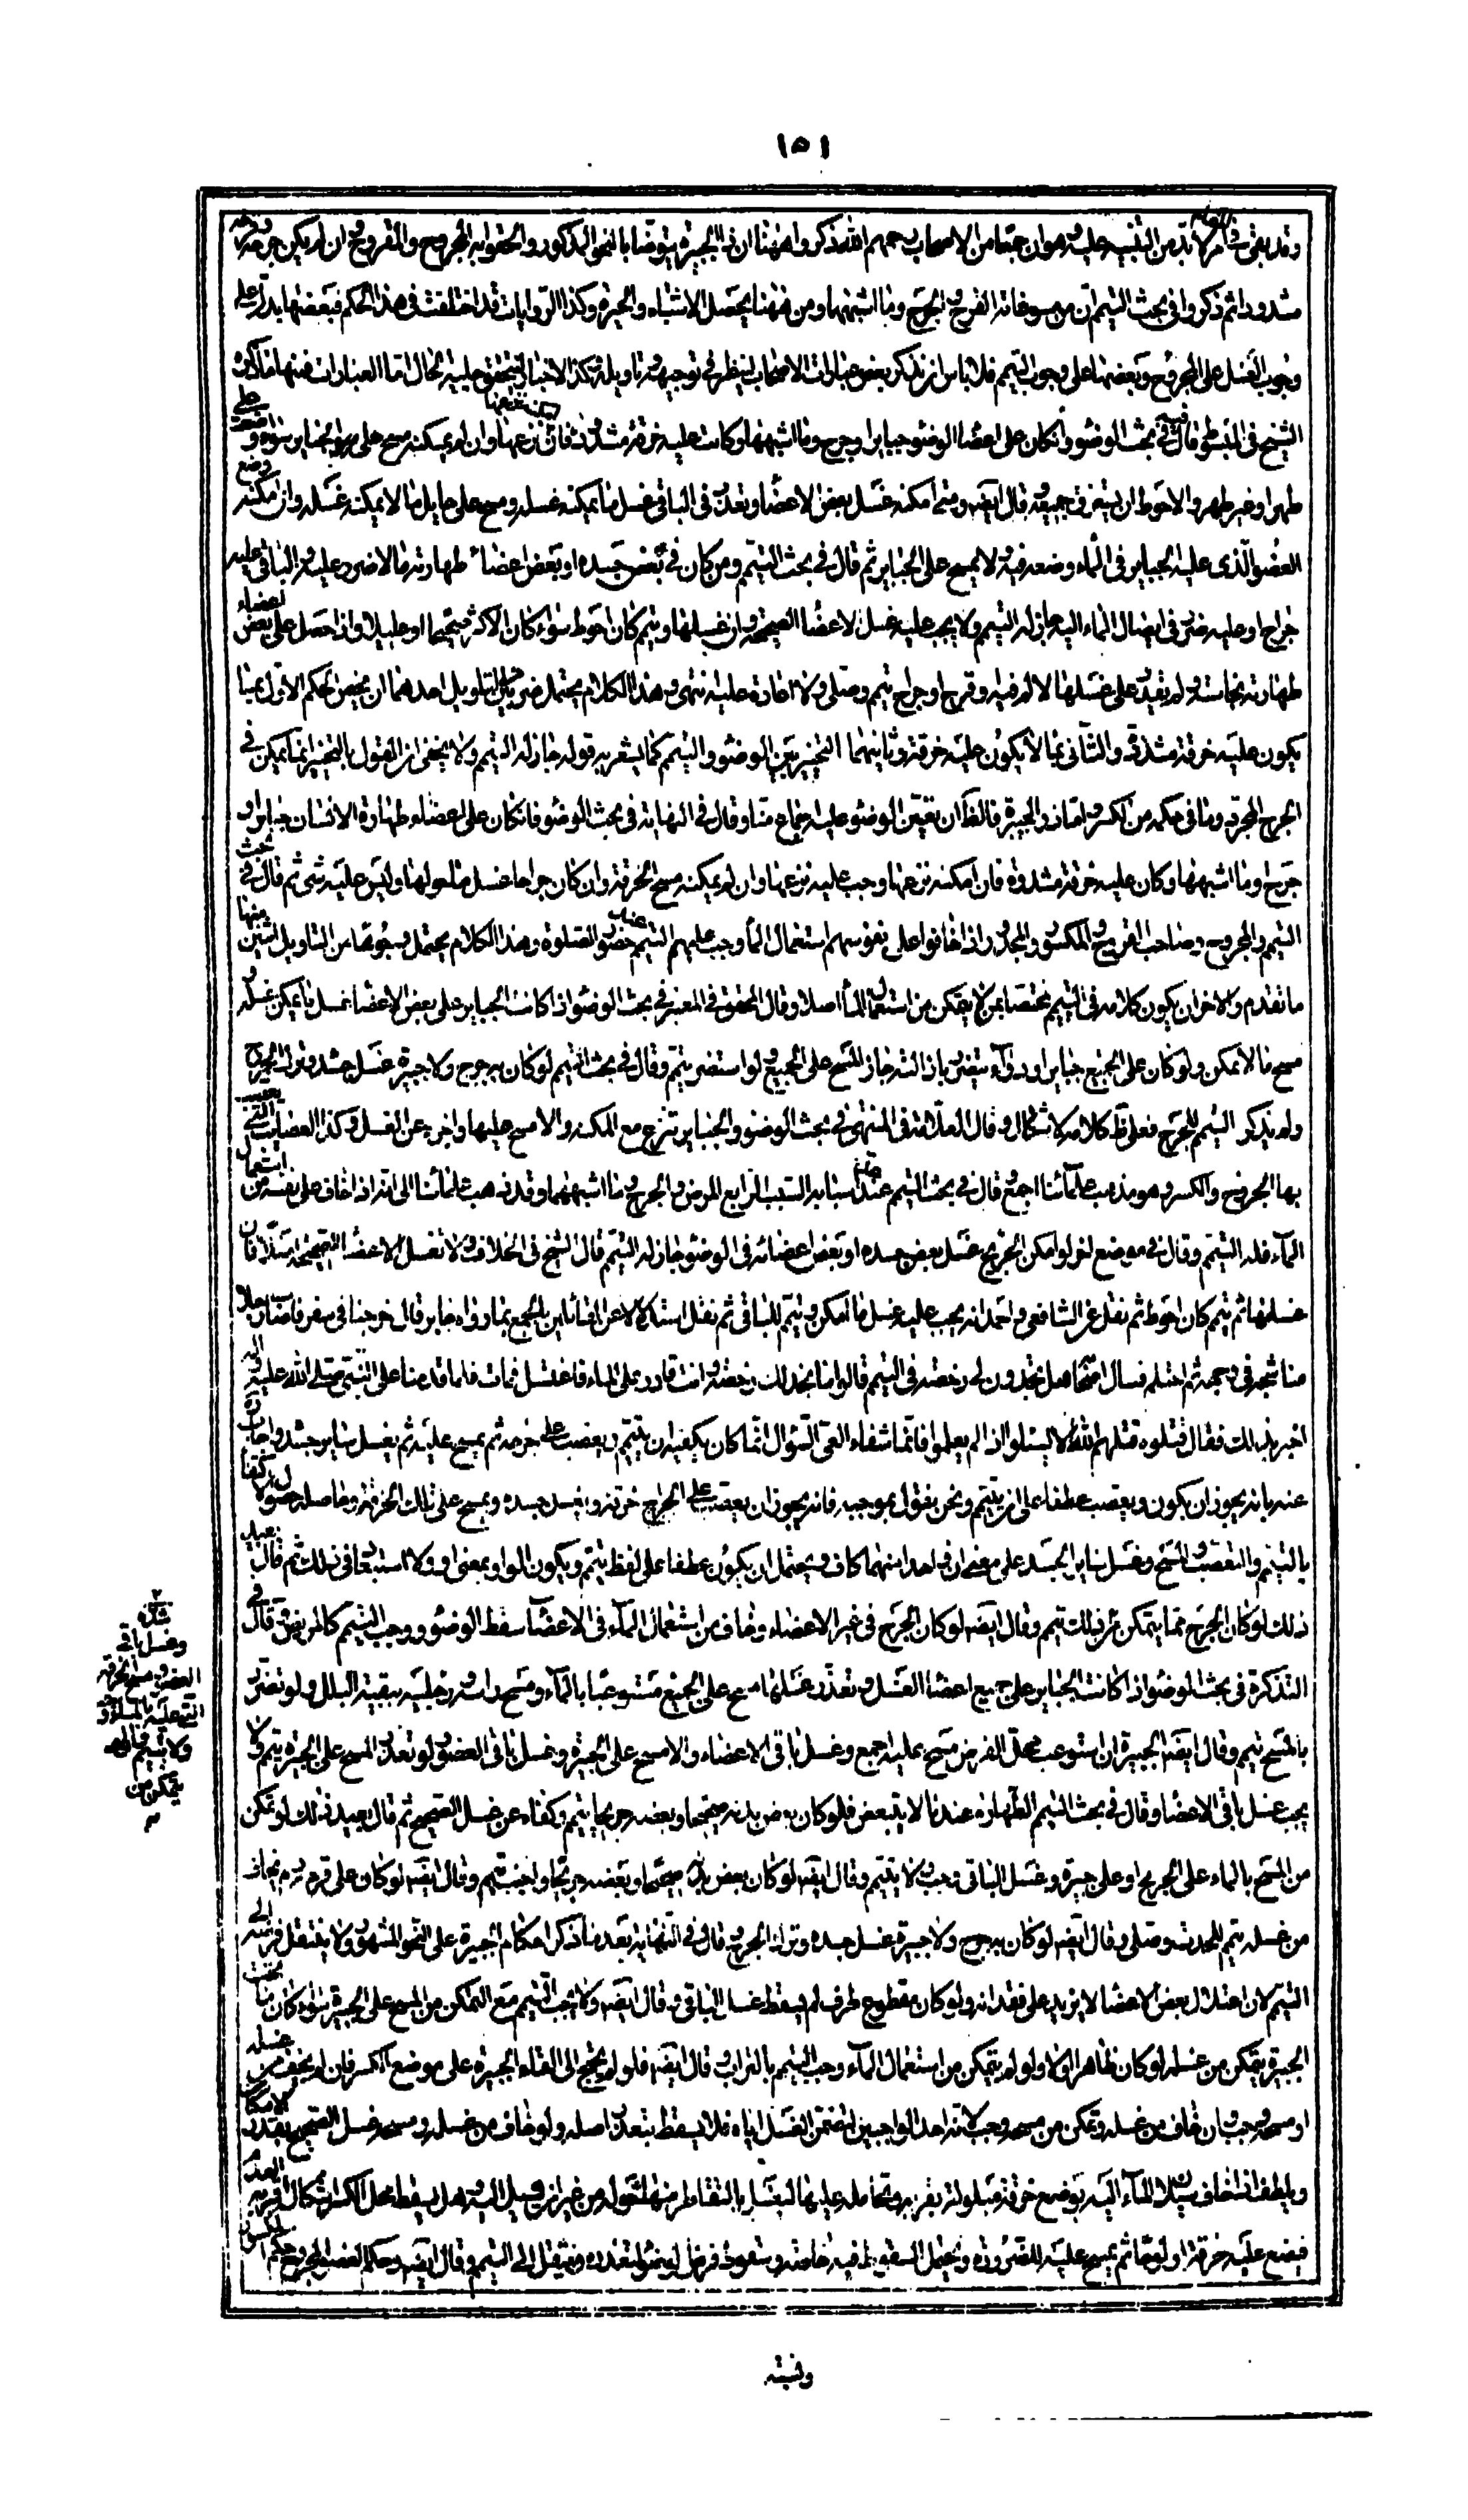 ١٥١
وقد بقى في المقام امر لا بد من التنبيه عليه وهو ان جمعا من الاصحاب رحمهم الله ذكروا ههنا ان ذا الجبيرة يتوضا بالنحو المذكور والحقوا به الجروح والقروح ان لم يكن خرقة
مشدودة ثم ذكروا في بحث التيمم ان من مسوغاته القرح والجرح وما اشبههما ومن ههنا يحصل الاشتباه والحيرة وكذا الروايات قد اختلفت في هذا الحكم فبعضها يدل على
وجوب الغسل على المجروح وبعضها على وجوب التيمم فلا باس ان نذكر بعض عبارات الاصحاب لينظر في توجيهه وتاويله ثم نذكر الاخبار ليتحقق جلية الحال اما العبارات فمنها ما ذكره
الشيخ في المبسوط قال فيه في بحث الوضوء وان كان على اعضاء الوضوء جباير او جرح وما اشبههما وكانت عليه خرقة مشدودة فان امكن نزعها نزعها وان لم يمكنه مسح على الجباير سواء وضعت على
طهر او غير طهر والاحوط ان يستغرق جميعه وقال ايضا ومتى امكنه غسل بعض الاعضاء وتعذر في الباقي غسل ما يمكنه غسله ومسح على حايل ما لا يمكنه غسله وان امكنه وضع
العضو الذي عليه الجباير في الماء وضعه فيه ولا يمسح على الجباير ثم قال في بحث التيمم ومن كان في بعض جسده او بعض اعضاء طهارته ما لا ضرر عليه والباقي عليه
جراح او عليه ضرر في ايصال الماء اليه جاز له التيمم ولا يجب عليه غسل الاعضاء الصحيحة وان غسلها وتيمم كان احوط سواء كان الاكثر صحيحا او عليلا واذا حصل على بعض اعضاء
طهارته نجاسة ولم يقدر على غسلها لالم فيه او قرح او جراح تيمم وصلى ولا اعادة عليه انتهى وهذا الكلام يحتمل ضربين من التاويل احدهما ان يخص الحكم الاول بما
يكون عليه خرقة مشدودة والثاني بما لا يكون عليه خرقة وثانيهما التخيير بين الوضوء والتيمم كما يشعر به قوله جاز له التيمم ولا يخفى ان القول بالتخيير انما يمكن في
الجرح المجرد وما في حكمه من الكسر واما ذو الجبيرة فالظ ان تعين الوضوء عليه اجماع منا وقال في النهاية في بحث الوضوء فان كان على اعضاء طهارة الانسان جباير او
جرح او ما اشبههما وكان عليه خرقة مشدودة فان امكنه نزعها وجب عليه نزعها وان لم يمكنه مسح على الخرقة وان كان جراحا غسل ما حولها وليس عليه شئ ثم قال في بحث
التيمم والمجروح وصاحب القروح والمكسور والمجدور اذا خافوا على نفوسهم استعمال الماء وجب عليهم التيمم عند حضور الصلوة وهذا الكلام يحتمل وجوها من التاويل اثنين منها
ما تقدم والاخر ان يكون كلامه في التيمم مختصا بمن لا يتمكن من استعمال الماء اصلا وقال المحقق في المعتبر في بحث الوضوء اذا كانت الجباير على بعض الاعضاء غسل ما يمكن غسله و
مسح ما لا يمكن ولو كان على الجميع جباير او دواء يتضرر بازالته جاز المسح على الجميع ولو استضر تيمم وقال في بحث التيمم لو كان به جرح ولا جبيرة غسل جسده وترك الجرح
ولم يذكر التيمم للجرح فعلى ظ كلامه لا اشكال وقال العلامة في المنتهى في بحث الوضوء والجباير تنزع مع المكنة والا مسح عليها واجزء عن الغسل وكذا العصابة التي تعصب
بها الجروح والكسر وهو مذهب علمائنا اجمع وقال في بحث التيمم عند اسبابه السبب الرابع المرض والجرح وما اشبههما وقد ذهب علمائنا الى انه اذا خاف على نفسه من استعمال
الماء فله التيمم وقال في موضع اخر لو امكن الجريح غسل بعض جسده او بعض اعضائه في الوضوء جاز له التيمم قال الشيخ في الخلاف ولا يغسل الاعضاء الصحيحة اصلا فان
غسلها ثم تيمم كان احوط ثم نقل عن الشافعي واحمد انه يجب عليه غسل ما امكن وتيمم للباقي ثم نقل استدلالا عن القائلين بالجمع بما رواه جابر قال خرجنا في سفر فاصاب رجلا
منا شجة في وجهه ثم احتلم فسال اصحابه هل تجدون لي رخصة في التيمم قالوا ما نجد لك رخصة وانت قادر على الماء فاغتسل فمات فلما قدمنا على النبي صلى الله عليه واله
اخبر بذلك فقال قتلوه قتلهم الله الا يسئلوا اذ لم يعلموا فانما شفاء العى السؤال انما كان يكفيه ان يتيمم ويعصب على جرحه ثم يمسح عليه ثم يغسل ساير جسده واجاب
عنه بانه يجوز ان يكون ويعصب عطفا على ان يتيمم ونحن نقول بموجبه فانه يجوز ان يعصب على الجراح خرقة ويغسل جسده ويمسح على تلك الخرقة وحاصله حصول الاكتفاء
بالتيمم والتعصب والمسح وغسل ساير الجسد على معنى ان واحدا منهما كاف ويحتمل ان يكون عطفا على لفظ يتيمم ويكون الواو بمعنى او ولا استبعاد في ذلك ثم قال بعيد
ذلك لو كان الجرح مما يتمكن من ذلك تيمم وقال ايضا لو كان الجرح في غير الاعضاء وخاف من استعمال الماء في الاعضاء سقط الوضوء ووجب التيمم كالمريض وقال في
التذكرة في بحث الوضوء اذا كانت الجباير على جميع اعضاء الغسل وتعذر غسلها مسح على الجميع مستوعبا بالماء ومسح راسه ورجليه ببقية البلل ولو تضرر
بالمسح تيمم وقال ايضا الجبيرة ان استوعب محل الفرض مسح عليه اجمع وغسل باقي الاعضاء والا مسح على الجبيرة وغسل باقي العضو ولو تعذر المسح على الجبيرة تيمم ولا
يجب غسل باقي الاعضاء وقال في بحث التيمم الطهارة عندنا لا يتبعض فلو كان بعض بدنه صحيحا وبعضه جريحا تيمم وكفاه عن غسل الصحيح ثم قال بعيد ذلك لو تمكن
من المسح بالماء على الجرح او على جبيرة وغسل الباقي وجب ولا يتيمم وقال ايضا لو كان بعض بدنه صحيحا وبعضه جريحا واجنب تيمم وقال ايضا لو كان على قرحه دم يخاف
من غسله تيمم للحدث وصلى وقال ايضا لو كان به جرح ولا جبيرة غسل جسده وترك الجرح وقال في النهاية بعد ما ذكر احكام الجبيرة على النحو المشهور ولا ينتقل فرضه الى
التيمم لان اختلال بعض الاعضاء لا يزيد على فقدانه ولو كان مقطوع طرف لم يسقط غسل الباقي وقال ايضا ولا يجب التيمم مع التمكن من المسح على الجبيرة سواء كان ما تحت
الجبيرة يتمكن من غسله لو كان ظاهرا او لا ولو لم يتمكن من استعمال الماء وجب التيمم بالتراب وقال ايضا فلو لم يحتج الى القاء الجبيرة على موضع الكسر فان لم يخف من غسله
او مسحه وجب وان خاف من غسله وتمكن من مسحه وجب لانه احد الواجبين لتضمن الغسل اياه فلا يسقط بتعذر اصله ولو خاف من غسله ومسحه غسل الصحيح بقدر الامكان
ويلطف اذا خاف سيلان الماء اليه بوضع خرقة مبلولة بقربه وتحامله عليها ليغسل بالتقاطر منها ما حوله من غير ان يسيل اليه وهل يسقط محل الكسر اشكال اقربه العدم
فيضع عليه خرقة او لوحا ثم يمسح عليه للضرورة ويحتمل السقوط فيه خاصة وسقوط فرض الوضوء لتعذره وينتقل الى التيمم وقال ايضا وحكم العضو المجروح حكم المكسور
شده
وغسل باقي
العضو ومسح الخرقة
التي عليه بالماء
ولا تيمم قال
يتمكن من